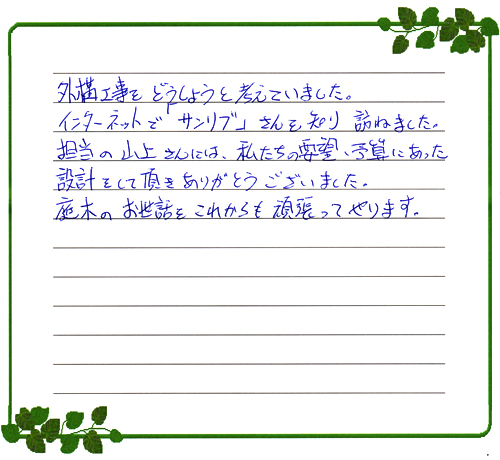 外構工事をどうしようと考えていました。
インターネットで「サンリブ」さんを知り訪ねました。
担当の山上さんには、私たちの要望、予算にあった
設計をして頂きありがとうございました。
庭木のお世話をこれからも頑張ってやります。